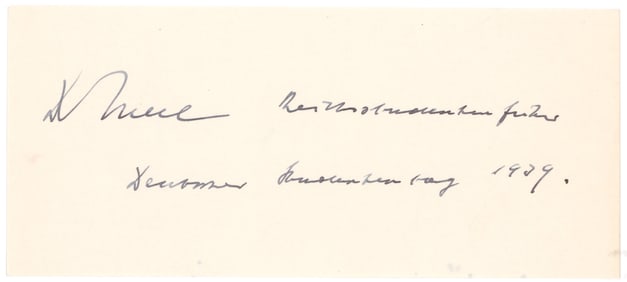 Reichsstudentenführer
Deutscher Studententag 1939.